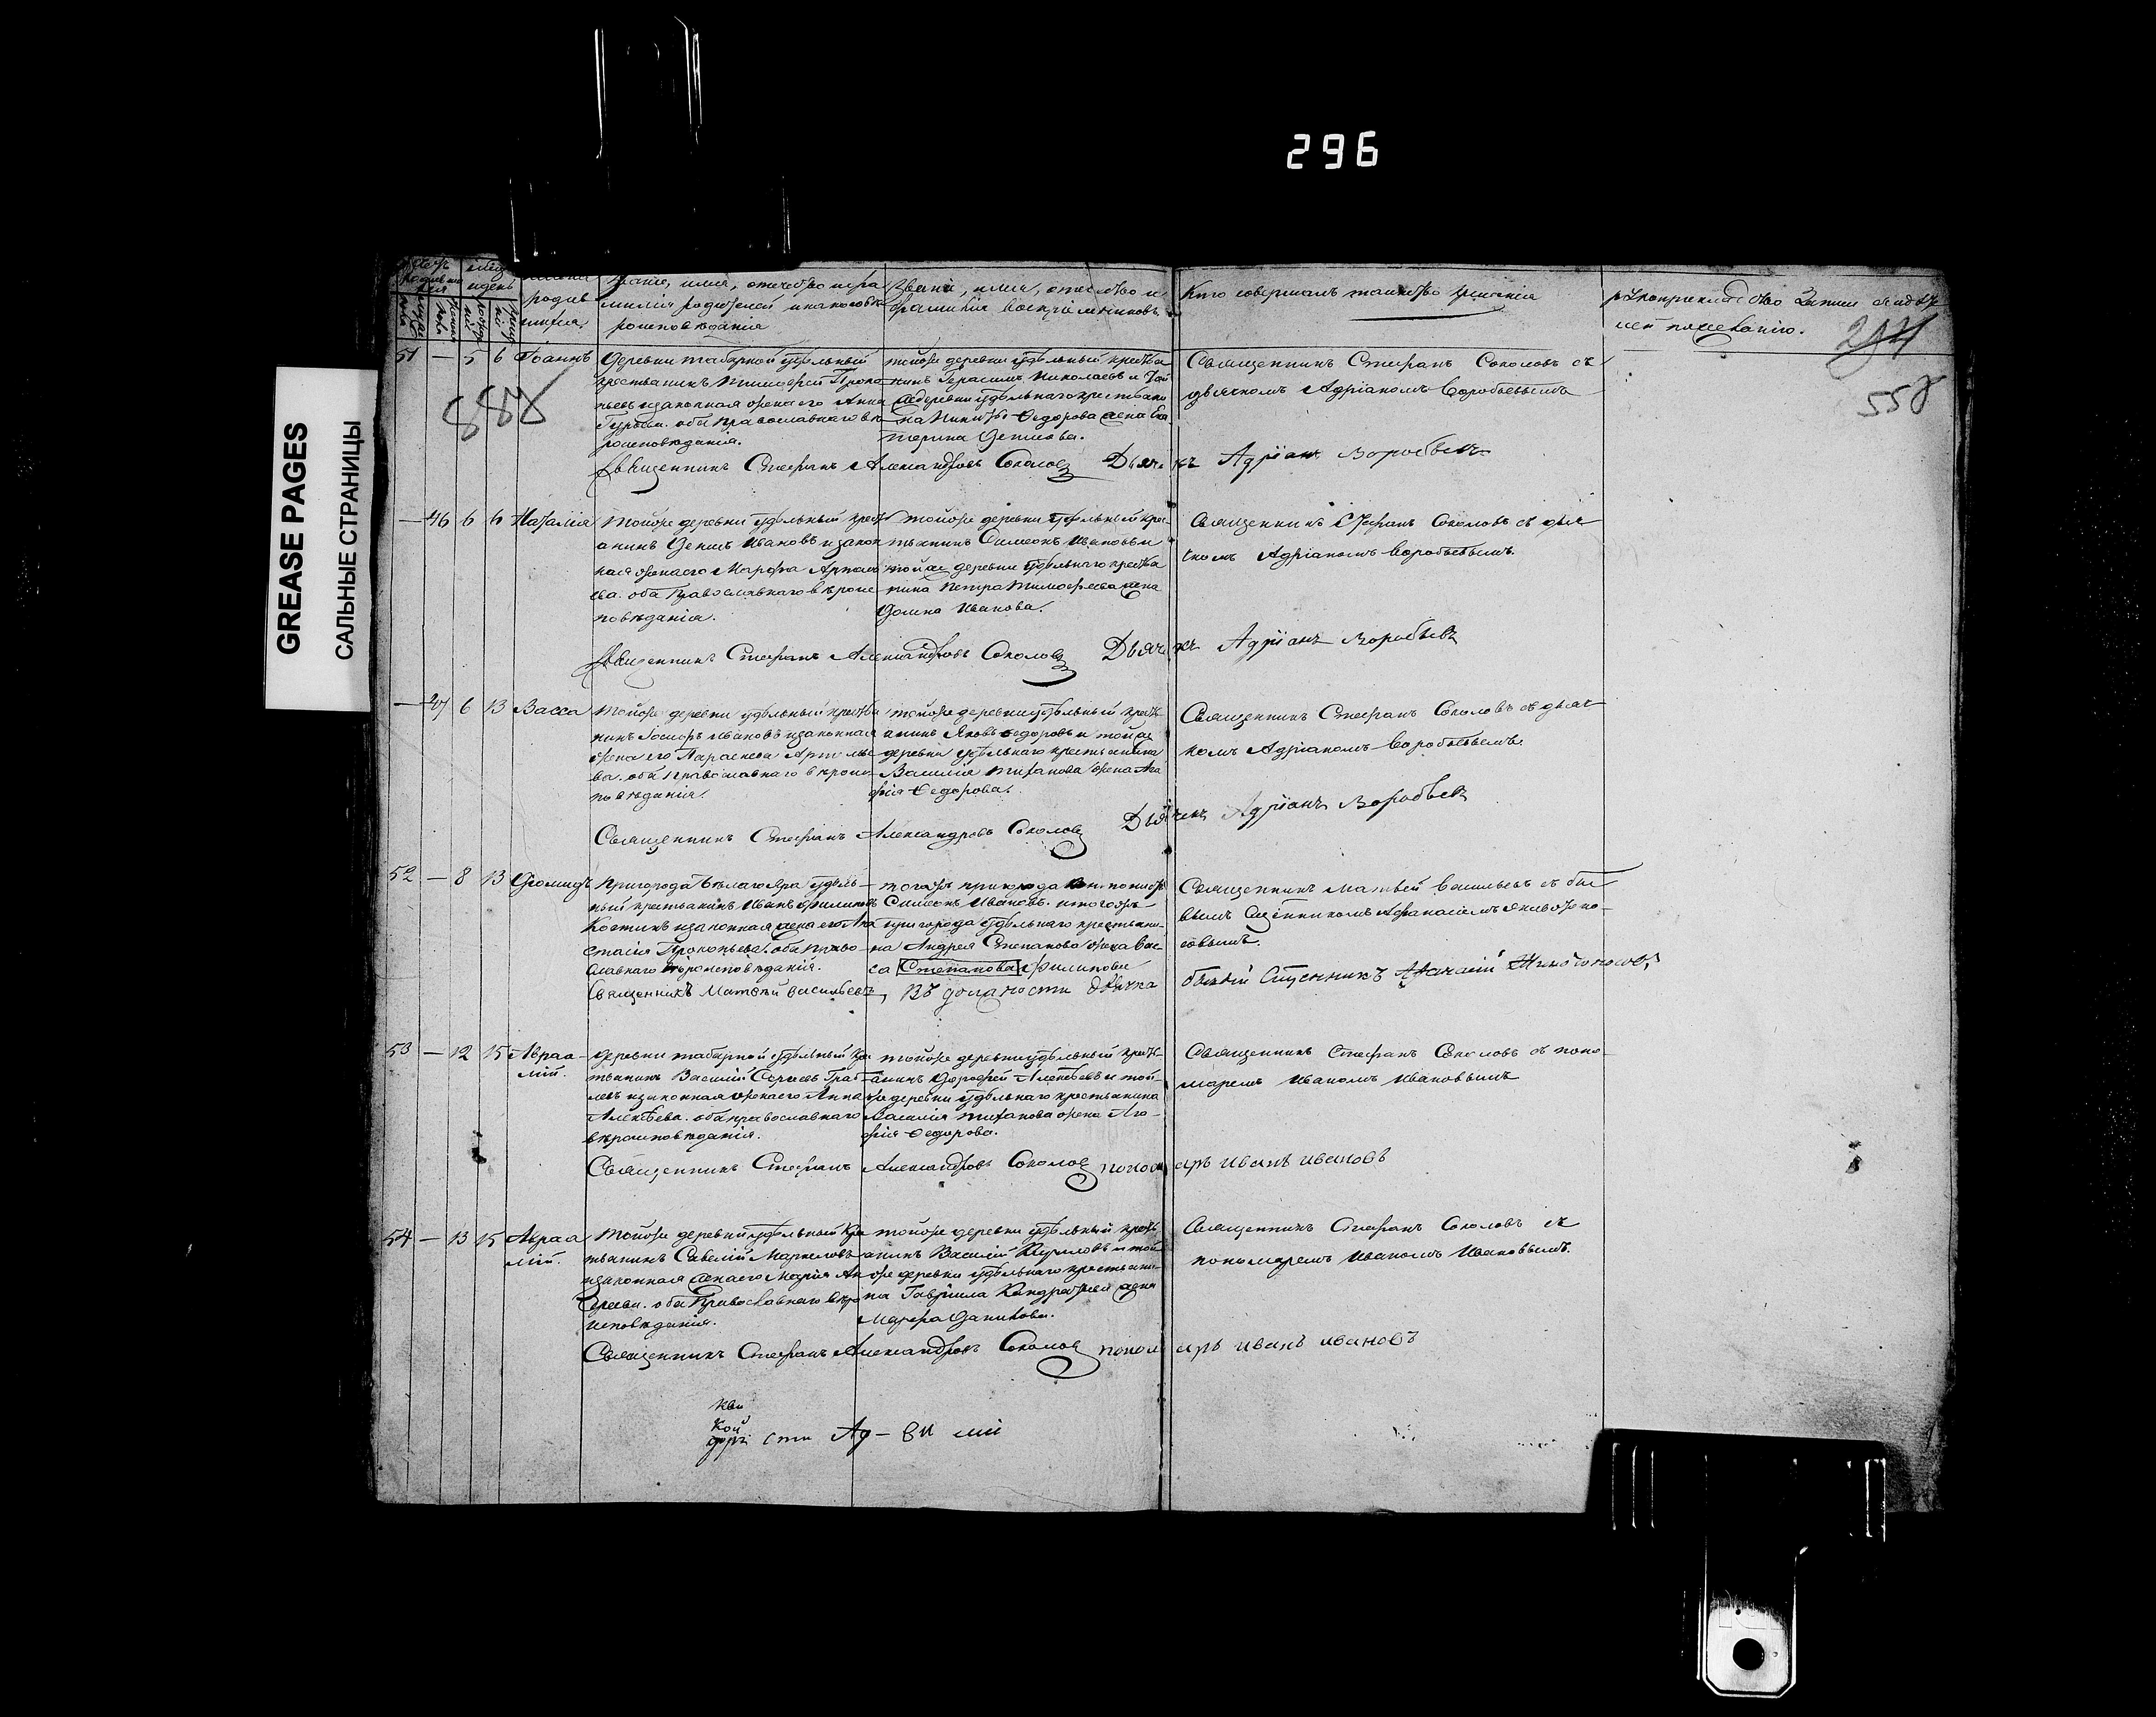 296
GREASE PAGES
САЛЬНЫЕ СТРАНИЦЫ
Званіе, имя, отечество и фа
милія родителей и какого вѣ
роисповѣданія
Званіе, имя, отечество и
фамилія воспріемниковъ
Кто совершалъ таинство крещенія
рукоприкладство
294
558
887
51 — 5 6 Іоаннъ
деревни удѣльный
крестьянинъ Тимофей Проко
пьевъ и законная жена его Анна
Гурьева. оба православнаго вѣ
роисповѣданія.
тойже деревни удѣльный крестья
нинъ Герасимъ Николаевъ и той
же деревни удѣльнаго крестьяни
на Никиты Ѳедорова жена Ека
терина Денисова.
Священникъ Стефанъ Соколовъ съ
дьячкомъ Адріаномъ Воробьевымъ
Священникъ Стефанъ Александровъ Соколовъ Дьячекъ Адріанъ Воробьевъ
— 46 6 6 Наталія
тойже деревни удѣльный кресть
янинъ Денисъ Ивановъ и закон
ная жена его Марфа
ва. оба православнаго вѣроис
повѣданія.
тойже деревни удѣльный крес
тьянинъ Симеонъ Ивановъ и
тойже деревни удѣльнаго крестья
нина Петра Тимофеева жена
Домна Иванова.
Священникъ Стефанъ Соколовъ съ дья
чкомъ Адріаномъ Воробьевымъ.
Священникъ Стефанъ Александровъ Соколовъ Дьячекъ Адріанъ Воробьевъ
— 47 6 13 Васса
тойже деревни удѣльный крестья
нинъ Іосифъ Ивановъ и законная
жена его Параскева
ва. оба православнаго вѣроис
повѣданія.
тойже деревни удѣльный кресть
янинъ Яковъ Ѳедоровъ и тойже
деревни удѣльнаго крестьянина
Василія Тиханова жена Ага
фія Ѳедорова.
Священникъ Стефанъ Соколовъ съ дьяч
комъ Адріаномъ Воробьевымъ.
Священникъ Стефанъ Александровъ Соколовъ Дьячекъ Адріанъ Воробьевъ
52 — 8 13 Діомидъ
пригорода Бѣлаго Яра удѣль
ный крестьянинъ Иванъ Филиповъ
Костинъ и законная жена его Ана
стасія Прокопьева. оба право
славнаго вѣроисповѣданія.
тогожъ пригорода
Симеонъ Ивановъ. и тогожъ
пригорода удѣльнаго крестьяни
на Андрея Степанова жена Вас
са Степанова Филипова
Священникъ Матвей Васильевъ съ быв
шимъ
Священникъ Матвѣй Васильевъ, Въ должности дьячка
53 — 12 15 Авраа
мій.
деревни удѣльный кре
стьянинъ Василій
и законная жена его Анна
Алексѣева. оба православнаго
вѣроисповѣданія.
тойже деревни удѣльный кресть
янинъ Дорофей Алексѣевъ и той
же деревни удѣльнаго крестьянина
Василія Тиханова жена Ага
фія Ѳедорова.
Священникъ Стефанъ Соколовъ съ поно
маремъ Иваномъ Ивановымъ
Священникъ Стефанъ Александровъ Соколовъ пономарь Иванъ Ивановъ
54 — 13 15 Авраа
мій.
тойже деревни удѣльный кре
стьянинъ Савелій Маркеловъ
и законная жена его Марія
оба православнаго вѣро
исповѣданія.
тойже деревни удѣльный кресть
янинъ Василій Кириловъ и той
же деревни удѣльнаго крестьяни
на Гавріила Кондратьева жена
Марфа Данилова.
Священникъ Стефанъ Соколовъ съ
пономаремъ Иваномъ Ивановымъ.
Священникъ Стефанъ Александровъ Соколовъ пономарь Иванъ Ивановъ